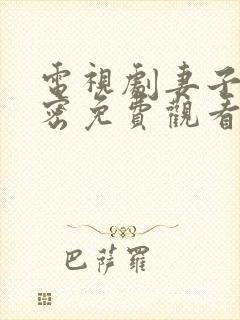 電視劇妻子
密免費觀看
巴薩羅